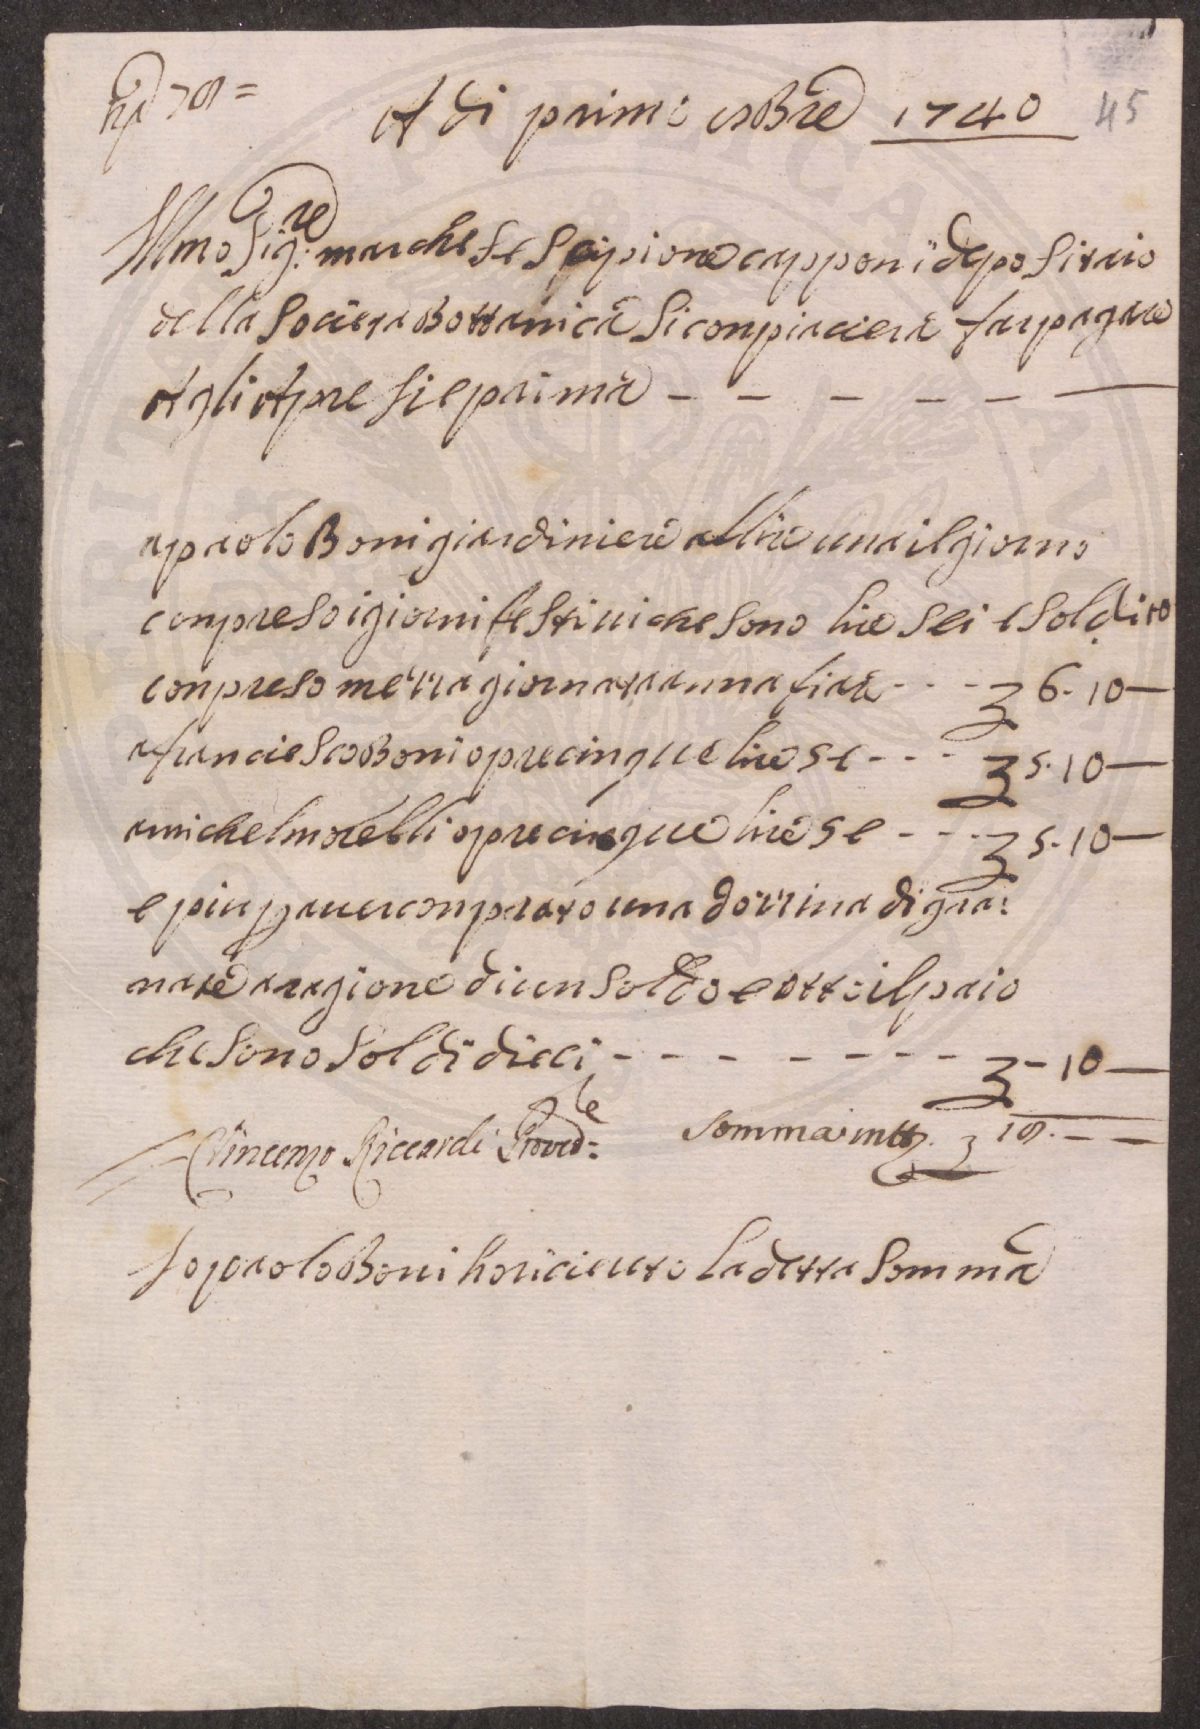 A di primo 8Bre 1740
45
Illmo Sig:re marchese Scipione capponi deposi taio
della Societa Bottanica Si conpiaciera far pagare
A gli Apre sie prima - - - - - -
a paolo Boni giardiniere a llire una il giorno
conpreso i giorni festiui che sono lire sei e soldi 10
conpreso mezza giornata auna fiata - - - 6. 10 —
a franciesco Boni opre cinque lire 5 e - - - 5. 10 —
a michel morelli opre cinque lire 5 e - - - 5. 10 —
e piu p auer conprato una dozzina di gra:
nate a ragione di un soldo e otto il paio
che sono soldi dieci - - - - - - - - - 10 —
Vincenzo Riccardi Proved:re Somma in tt. 18. — —
Io paolo Boni ho ricieuto la detta Somma